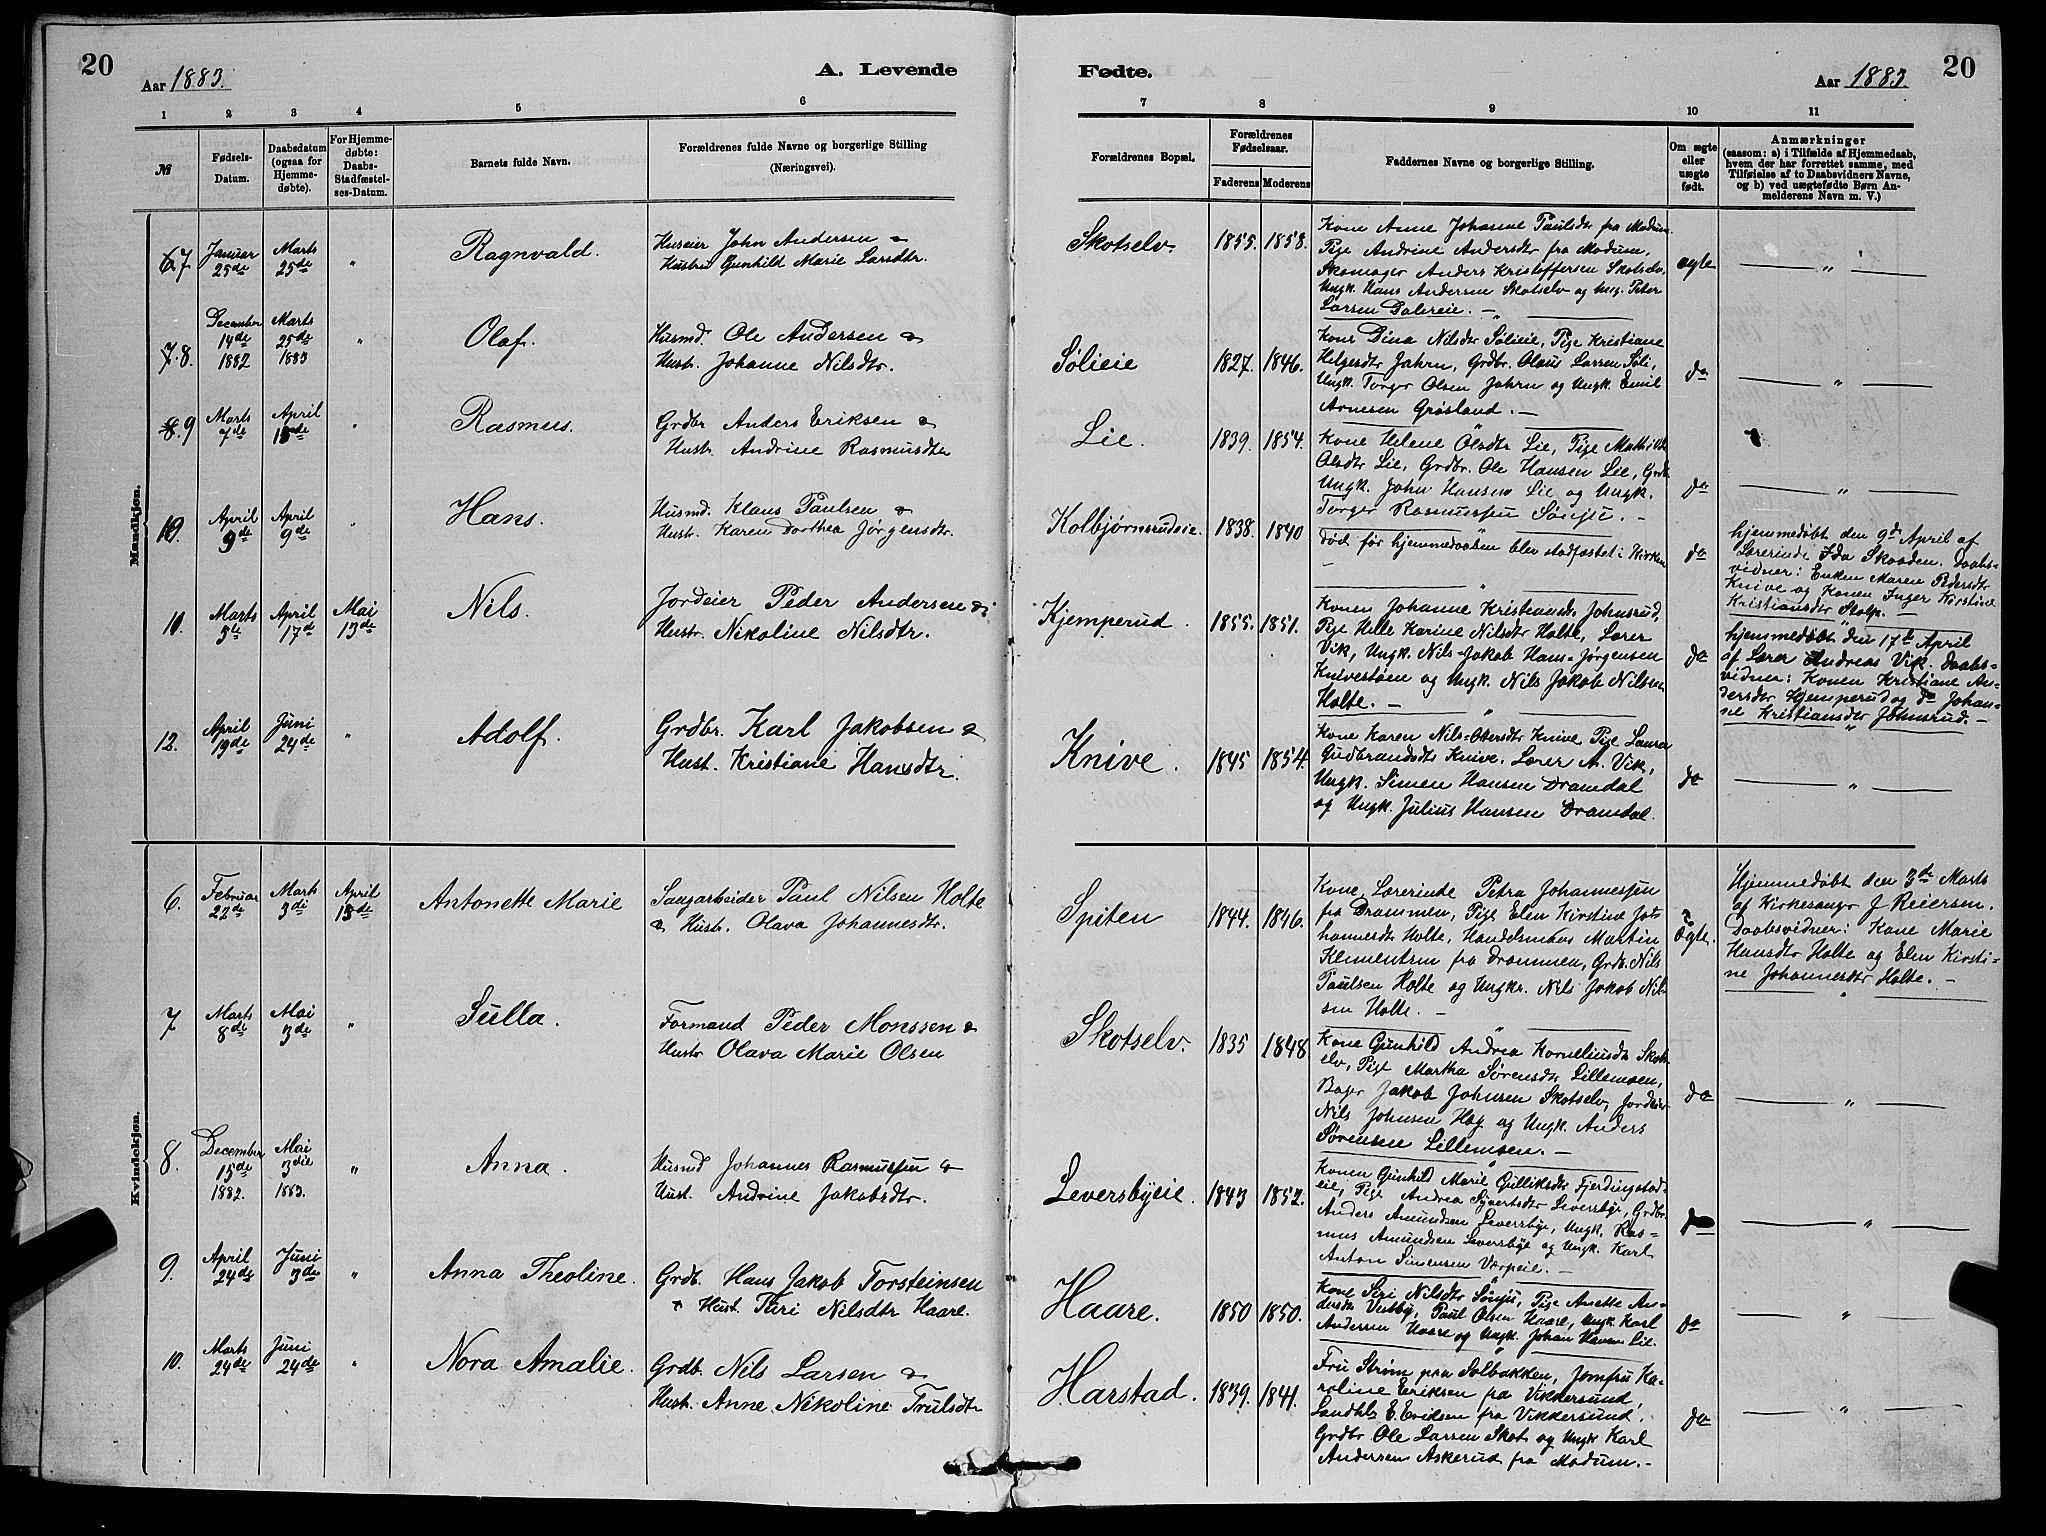 20
Aar 1883.
A. Levende
1 2 3 4 5 6
№
Fødsels-
Datum.
Daabsdatum
(ogsaa for
Hjemme-
døbte).
For Hjemme-
døbte:
Daabs-
Stadfæstel-
ses-Datum.
Barnets fulde Navn.
Forældrenes fulde Navne og borgerlige Stilling
(Næringsvei).
Mandkjøn.
7
Januar
25de
Marts
25de
"
Ragnvald.
Huseier John Andersen &
Hustru Gunhild Marie Larsdtr.
8.
December
14de
1882
Marts
25de
1883
"
Olaf.
Husmd. Ole Andersen &
Hustr. Johanne Nilsdtr.
9
Marts
7de
April
13de
"
Rasmus.
Grdbr Anders Eriksen &
Hustr. Andrine Rasmusdtr
10.
April
9de
April
9de
"
Hans.
Husmd. Klaus Paulsen &
Hustr. Karen Dorthea Jørgensdtr.
11.
Marts
5te
April
17de
Mai
13de
Nils.
Jordeier Peder Andersen &
Hustr. Nikoline Nilsdtr.
12.
April
19de
Juni
24de
"
Adolf.
Grdbr. Karl Jakobsen &
Hust. Kristiane Hansdtr.
Kvindekjøn.
6.
Februar
22de
Marts
3di
April
13de
Antonette Marie
Saugarbeider Paul Nilsen Holte
& Hustr. Olava Johannesdtr.
7
Marts
8de
Mai
3de
"
Sulla.
Formand Peder Monssen &
Hustr Olava Marie Olsen
8.
December
15de
1882.
Mai
3die
1883.
"
Anna.
Husmd Johannes Rasmussen &
Hust. Andrine Jakobsdtr.
9.
April
24de
Juni
3de
"
Anna Theoline.
Grdb. Hans Jakob Torsteinsen
& Hust. Turi Nilsdtr Haare.
10.
Marts
24de
Juni
24de
"
Nora Amalie.
Grdb. Nils Larsen &
Hust. Anne Nikoline Trulsdtr
Fødte.
Aar 1883.
20
7 8 9 10 11
Forældrenes Bopæl.
Forældrenes
Fødselsaar.
Faderens
Moderens
Faddernes Navne og borgerlige Stilling.
Om ægte
eller
uægte
født.
Anmærkninger
(saasom: a) i Tilfælde af Hjemmedaab,
hvem der har forrettet samme, med
Tilføielse af to Daabsvidners Navne,
og b) ved uægtefødte Børn An-
melderens Navn m. V.)
Skotselv.
1855. 1858.
Kone Anne Johanne Paulsdtr fra Modum
Pige Andrine Andersdtr fra Modum,
Skomager Anders Kristoffersen Skotselv,
Ungk. Hans Andersen Skotselv og Ung. Peter
Larsen Dalereie. —
ægte
"
Sølieie
1827. 1846.
Kone Dina Nilsdtr Sølieie, Pige Kristiane
Helgesdtr Jahrn, Grdbr. Olaus Larsen Søli,
Ungk. Torger Olsen Jahrn og Ungk. Emil
Arnesen Grøsland. —
do
"
Lie.
1839. 1854.
Kone Helene Olsdtr Lie, Pige Mathilde
Olsdtr Lie, Grdbr. Ole Hansen Lie,
Ungk. John Hansen Lie og Ungk.
Torger Rasmussen Sønju. —
do
"
Kolbjørnsrudeie.
1838. 1840
død før hjemmedaaben blev stadfæstet i Kirken
do
hjemmedøbt den 9de April af
Lærerinde Ida Skaaden. Daabs-
vidner: Enken Maren Pedersdtr
Knive og Konen Inger Kirstine
Kristiansdtr Stolp. —
Kjemperud.
1855. 1851.
Konen Johanne Kristiansdtr Johnsrud,
Pige Helle Karine Nilsdtr Holte, Lærer
Vik, Ungk. Nils Jakob Hans-Jørgensen
Knivestøen og Ungk. Nils Jakob Nilsen
Holte. —
do
hjemmedøbt den 17de April
af Lærer Andreas Vik. Daabs-
vidner: Konen Kristiane An-
dersdtr Kjemperud og do Johan-
ne Kristiansdtr Johnsrud. —
Knive.
1845 1854.
Kone Karen Nils-Olersdtr Knive, Pige Laura
Gudbrandsdtr Knive, Lærer A. Vik,
Ungk. Simen Hansen Dramdal
og Ungk. Julius Hansen Dramdal.
do
"
Spiten
1844. 1846.
Kone Lærerinde Petra Johannessen
fra Drammen, Pige Elen Kirstine Jo-
hannesdtr Holte, Handelsmand Martin
Klementsen fra Drammen, Grdb. Nils
Paulsen Holte og Ungkr. Nils Jakob Nil-
sen Holte. —
Ægte.
Hjemmedøbt den 3de Marts
af Kirkesanger J Reiersen.
Daabsvidner: Kone Marie
Hansdtr Holte og Elen Kirsti-
ne Johannesdtr Holte. —
Skotselv.
1835 1848
Kone Gunhild Andrea Korneliusdtr Skots-
elv, Pige Martha Sørensdtr Lillemoen,
Bager Jakob Johnsen Skotselv, Jordeier
Nils Johnsen Hog og Ungk. Anders
Sørensen Lillemoen. —
do
"
Leversbyeie.
1843 1852.
Konen Gunhild Marie Gulliksdtr Fjerdingstad-
eie, Pige Andrea Syvertsdtr Leversbye, Grdbr.
Anders Amundsen Leversbye, Ungk. Ras-
mus Amundsen Leversbye og Ungk. Karl
Anton SimensenVærpeie. —
do
"
Haare.
1850 1850.
Kone Siri Nilsdtr Sønju, Pige Anette An-
dersdtr Vestby, Paul Olsen Haare, Ungk. Karl
Andersen Haare og Ungk. Johan Hansen Lie.
do
"
Harstad.
1839. 1841.
Fru Strøm paa Solbakken, Jomfru Ka-
roline Eeriksen fra Vikkersund,
Landhl. E. Eriksen fra Vikkersund,
Grdbr Ole Larsen Skot og Ungkr Karl
Andersen Askerud fra Modum. —
do
"